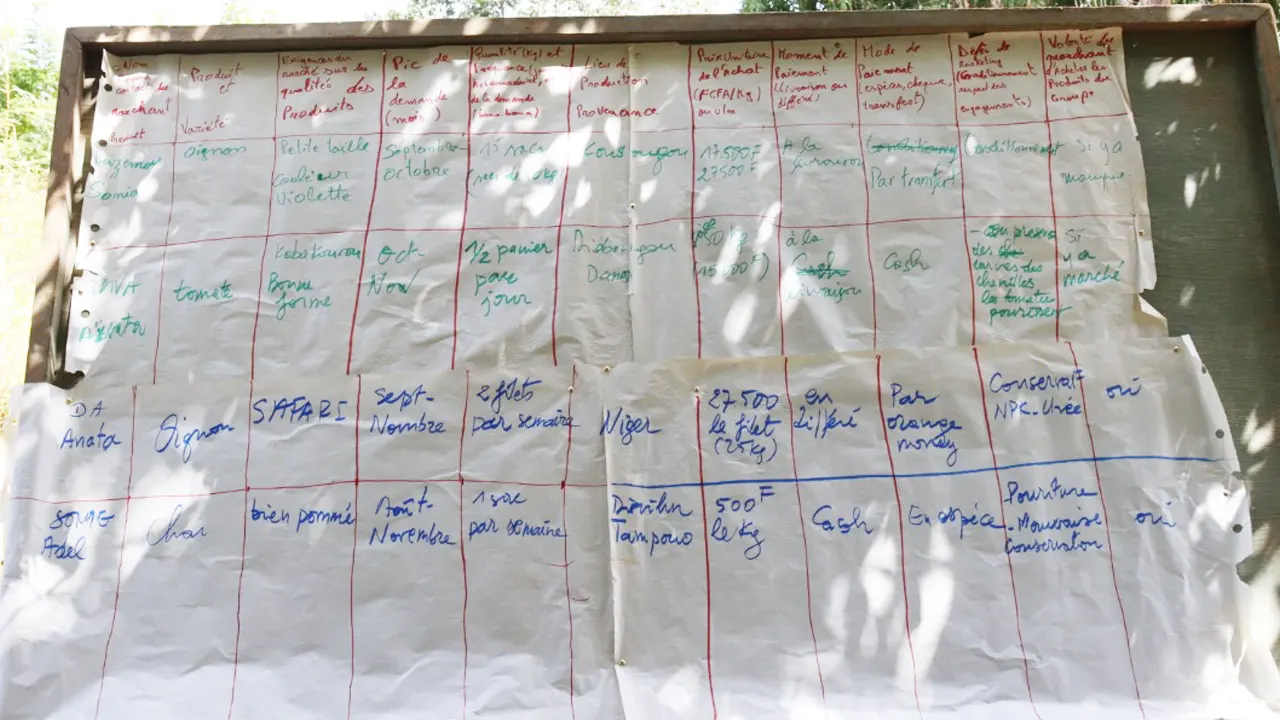 Nom
Marchand
Produit
et
Variété
Exigences du
marché sur la
qualité des
Produits
Pic de
la
demande
(mois)
Quantité (Kg) et
fréquence
hebdomadaire
de la demande
Lieu de
Production
Provenance
Prix Unitaire
de l'Achat
(FCFA/Kg)
ou
Moment de
Paiement
(livraison ou
différé)
Mode de
Paiement
(espèces, chèque,
transfert)
Défis de
Marketing
(Conditionnement
respect des
engagements)
Volonté du
marchand
d'Acheter les
Produits du
Groupe
oignon
Petite taille
Couleur
Violette
Septembre-
octobre
15 sacs
17500F
27500F
A la
livraison
Par transfert
Conditionnement
si y a
manque
Aïssata
tomate
Bonne
forme
Oct-
Nov
1/2 panier
par
jour
Diébougou
Dano
(15000F)
à la
Cash
livraison
Cash
des
larves des
chenilles
les tomates
pourissent
Si
y a
marché
DA
Anata
Oignon
SAFARI
Sept-
Nombre
2 filets
par semaine
Niger
27 500
le filet
(25kg)
en
différé
Par
orange
money
Conservat°
NPK-Urée
oui
Adel
Chou
bien pommé
Août-
Novembre
1 sac
par semaine
500F
le kg
Cash
En espéce
Pouriture
- Mauvaise
Conservation
oui